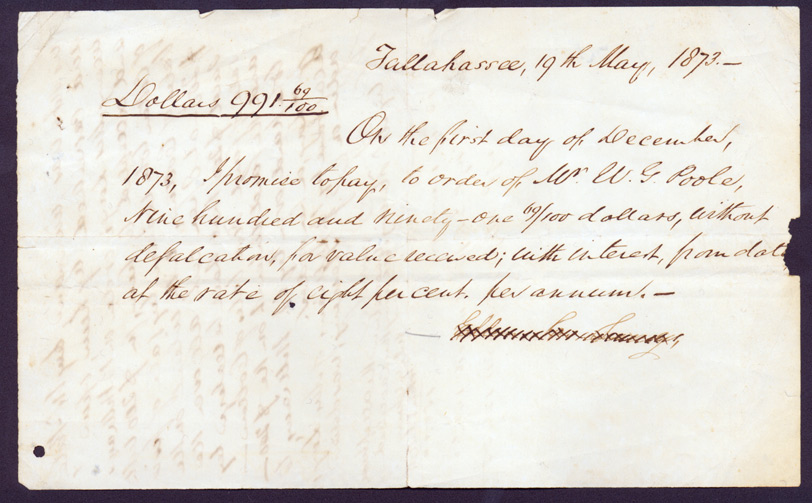 Tallahassee, 19th May, 1873.—
Dollars 991 69/100
On the first day of December,
1873, I promise to pay, to order of Mr. W. G. Poole,
Nine hundred and ninety-one 69/100 dollars, without
defalcation, for value received; with interest, from date
at the rate of eight per cent. per annum.—